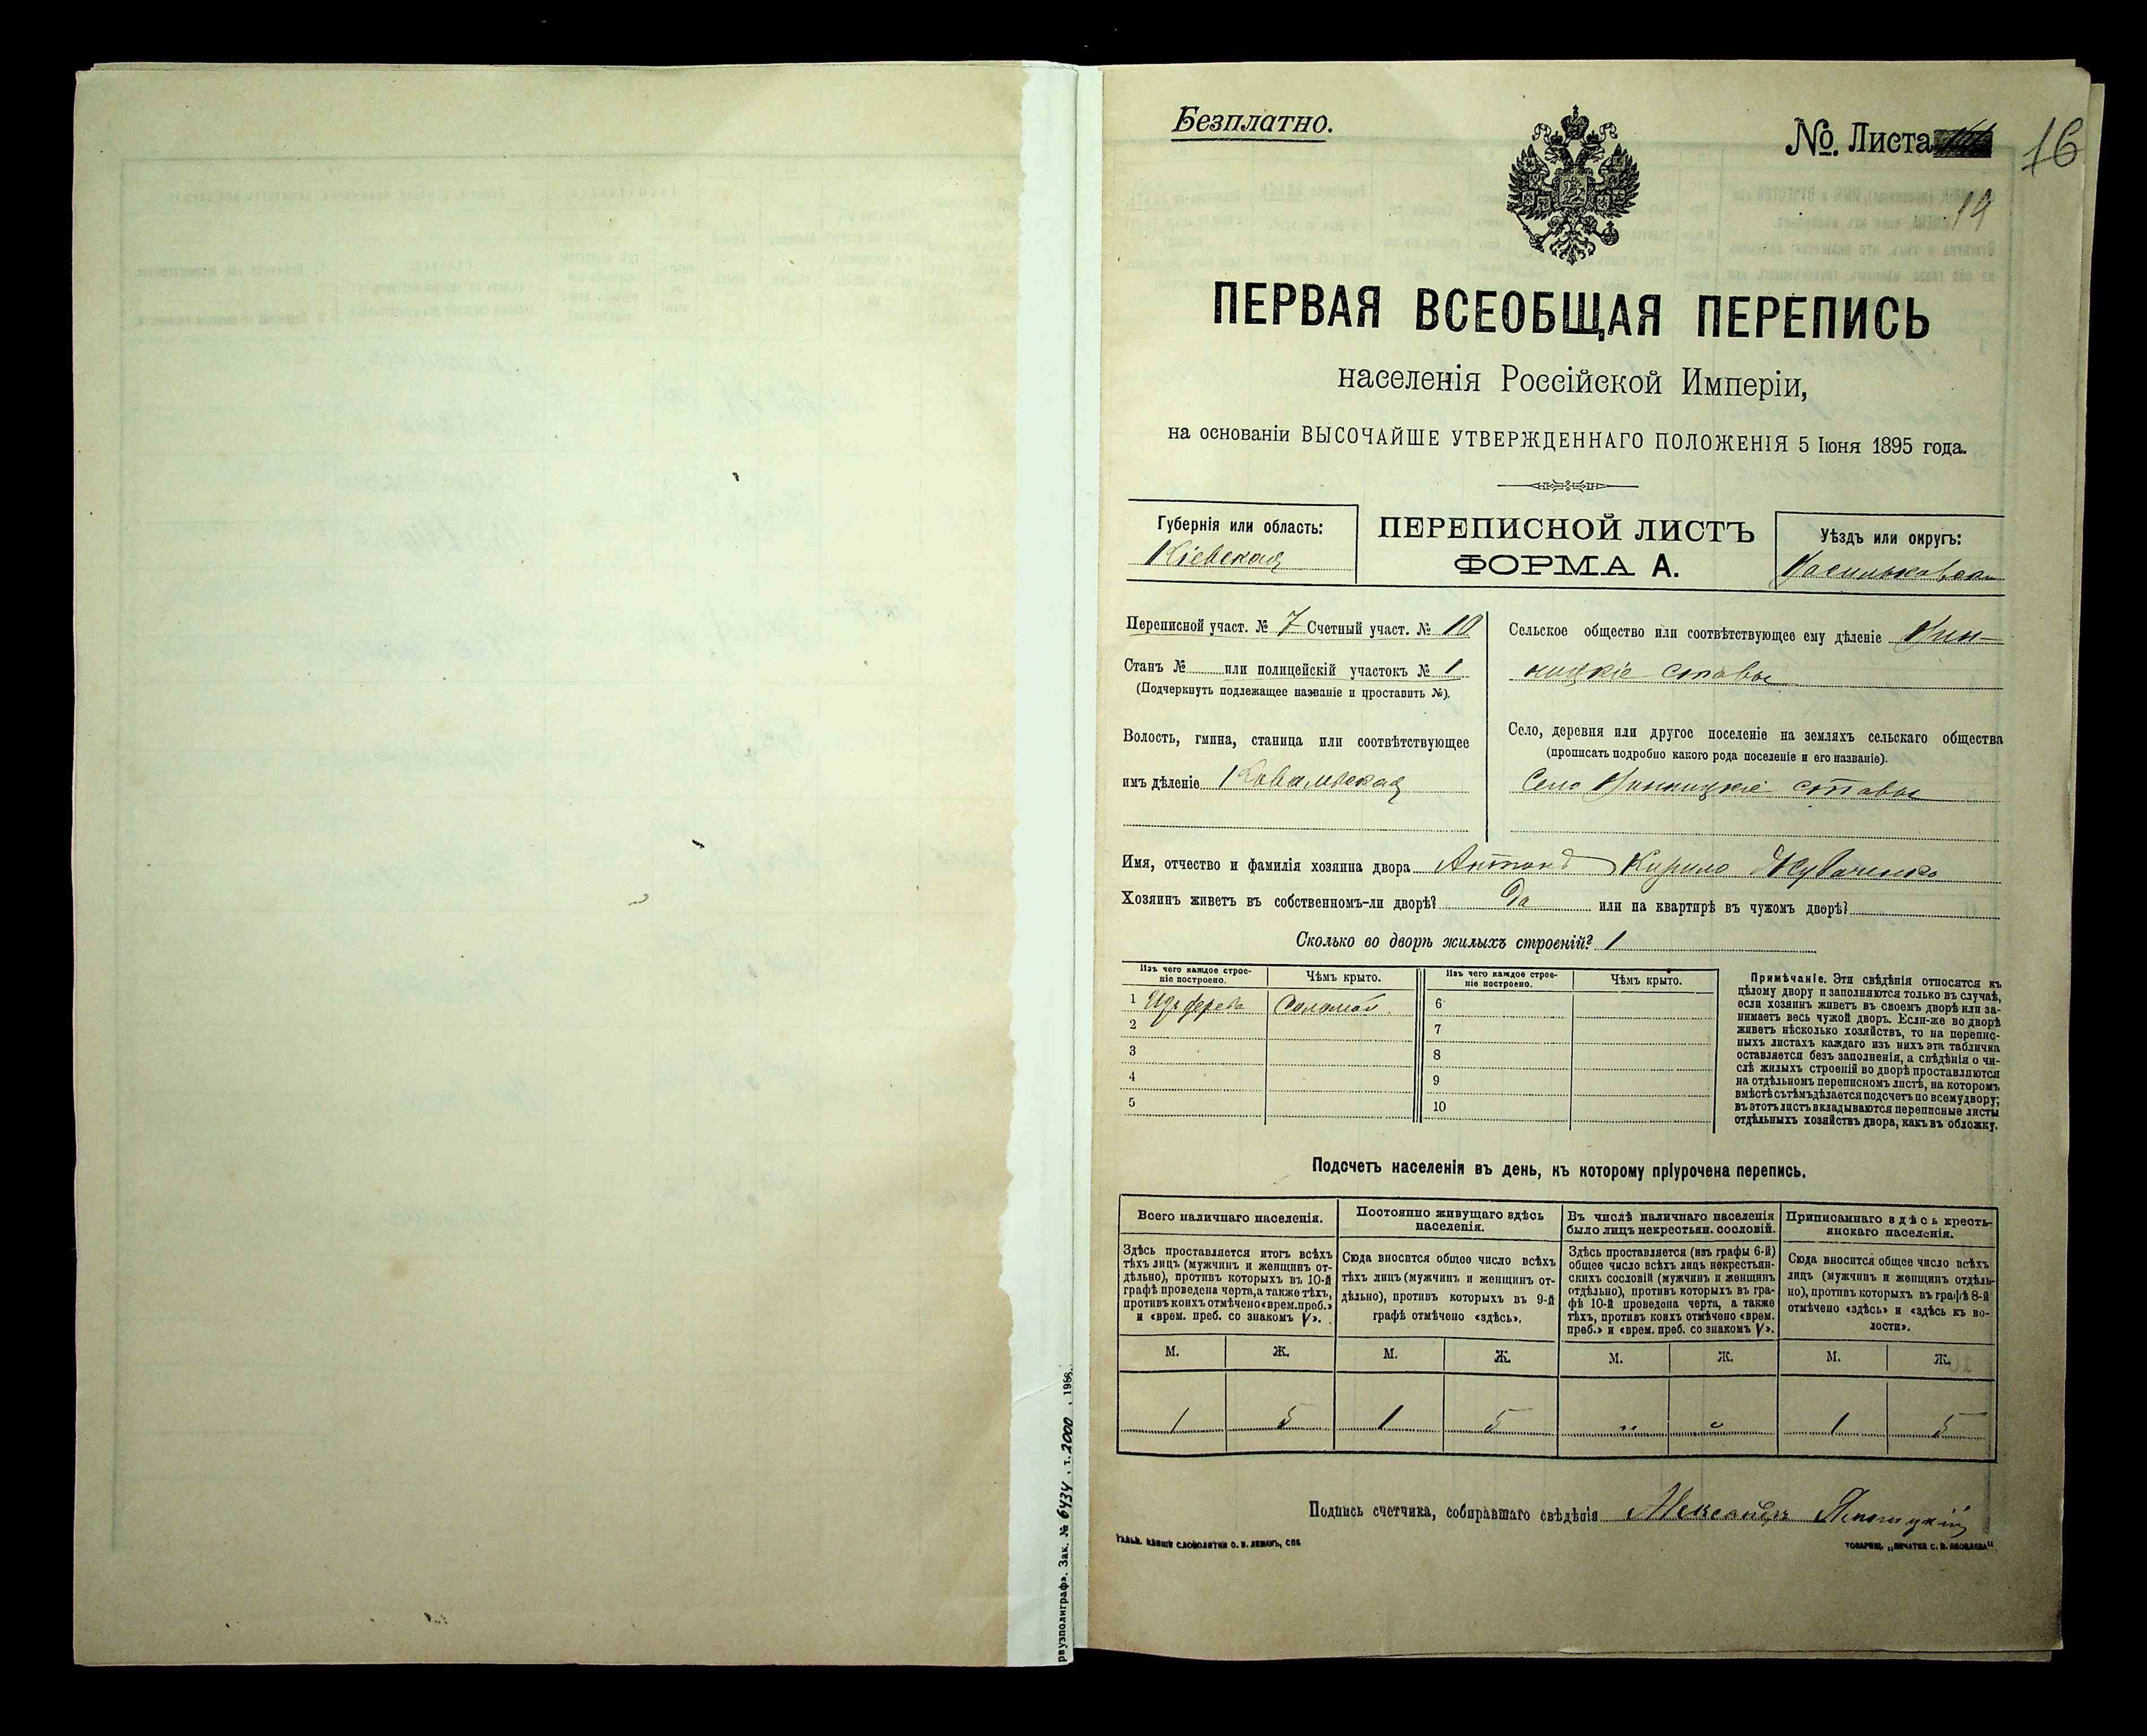 Безплатно.
№ Листа
16
19
ПЕРВАЯ ВСЕОБЩАЯ ПЕРЕПИСЬ
населенія Россійской Имперіи,
на основаніи ВЫСОЧАЙШЕ УТВЕРЖДЕННАГО ПОЛОЖЕНІЯ 5 Іюня 1895 года.
Губернія или область:
Кіевская
ПЕРЕПИСНОЙ ЛИСТЪ
ФОРМА А.
Уѣздъ или округъ:
Васильковскій
Переписной участ. № 7 Счетный участ. № 10
Станъ № или полицейскій участокъ № 1
(Подчеркнуть подлежащее названіе и проставить №).
Волость, гмина, станица или соотвѣтствующее
имъ дѣленіе Ковалевская
Сельское общество или соотвѣтствующее ему дѣленіе Вин-
ницкіе ставы
Село, деревня или другое поселеніе на земляхъ сельскаго общества
(прописать подробно какого рода поселеніе и его названіе).
Село Винницкіе ставы
Имя, отчество и фамилія хозяина двора Антонъ Кирило
Хозяинъ живетъ въ собственномъ-ли дворѣ? Да или на квартирѣ въ чужомъ дворѣ?
Сколько во дворѣ жилыхъ строеній? 1
Изъ чего каждое строе-
ніе построено.
Чѣмъ крыто.
Изъ чего каждое строе-
ніе построено.
Чѣмъ крыто.
1 Изъ дерева Соломой 6
2 7
3 8
4 9
5 10
Примѣчаніе. Эти свѣдѣнія относятся къ
цѣлому двору и заполняются только въ случаѣ,
если хозяинъ живетъ въ своемъ дворѣ или за-
нимаетъ весь чужой дворъ. Если-же во дворѣ
живетъ нѣсколько хозяйствъ, то на перепис-
ныхъ листахъ каждаго изъ нихъ эта табличка
оставляется безъ заполненія, а свѣдѣнія о чи-
слѣ жилыхъ строеній во дворѣ проставляются
на отдѣльномъ переписномъ листѣ, на которомъ
вмѣстѣ съ тѣмъ дѣлается подсчетъ по всему двору;
въ этотъ листъ вкладываются переписные листы
отдѣльныхъ хозяйствъ двора, какъ въ обложку.
Подсчетъ населенія въ день, къ которому пріурочена перепись.
Всего наличнаго населенія.
Здѣсь проставляется итогъ всѣхъ
тѣхъ лицъ (мужчинъ и женщинъ от-
дѣльно), противъ которыхъ въ 10-й
графѣ проведена черта, а также тѣхъ,
противъ коихъ отмѣчено «врем. преб.»
и «врем. преб. со знакомъ V».
Постоянно живущаго здѣсь
населенія.
Сюда вносится общее число всѣхъ
тѣхъ лицъ (мужчинъ и женщинъ от-
дѣльно), противъ которыхъ въ 9-й
графѣ отмѣчено «здѣсь».
Въ числѣ наличнаго населенія
было лицъ некрестьян. сословій.
Здѣсь проставляется (изъ графы 6-й)
общее число всѣхъ лицъ некрестьян-
скихъ сословій (мужчинъ и женщинъ
отдѣльно), противъ которыхъ въ гра-
фѣ 10-й проведена черта, а также
тѣхъ, противъ коихъ отмѣчено «врем.
преб.» и «врем. преб. со знакомъ V».
Приписаннаго здѣсь кресть-
янскаго населенія.
Сюда вносится общее число всѣхъ
лицъ (мужчинъ и женщинъ отдѣль-
но), противъ которыхъ въ графѣ 8-й
отмѣчено «здѣсь» и «здѣсь къ во-
лости».
М. Ж. М. Ж. М. Ж. М. Ж.
1 5 1 5 " " 1 5
Подпись счетчика, собиравшаго свѣдѣнія Александръ
ГАЛЬВ. КЛИШЕ СЛОВОЛИТНИ О. И. ЛЕМАНЪ, СПБ
ТОВАРИЩ. „ПЕЧАТНЯ С. П. ЯКОВЛЕВА“
рвузполиграф». Зак. № 6434, т. 2000, 198